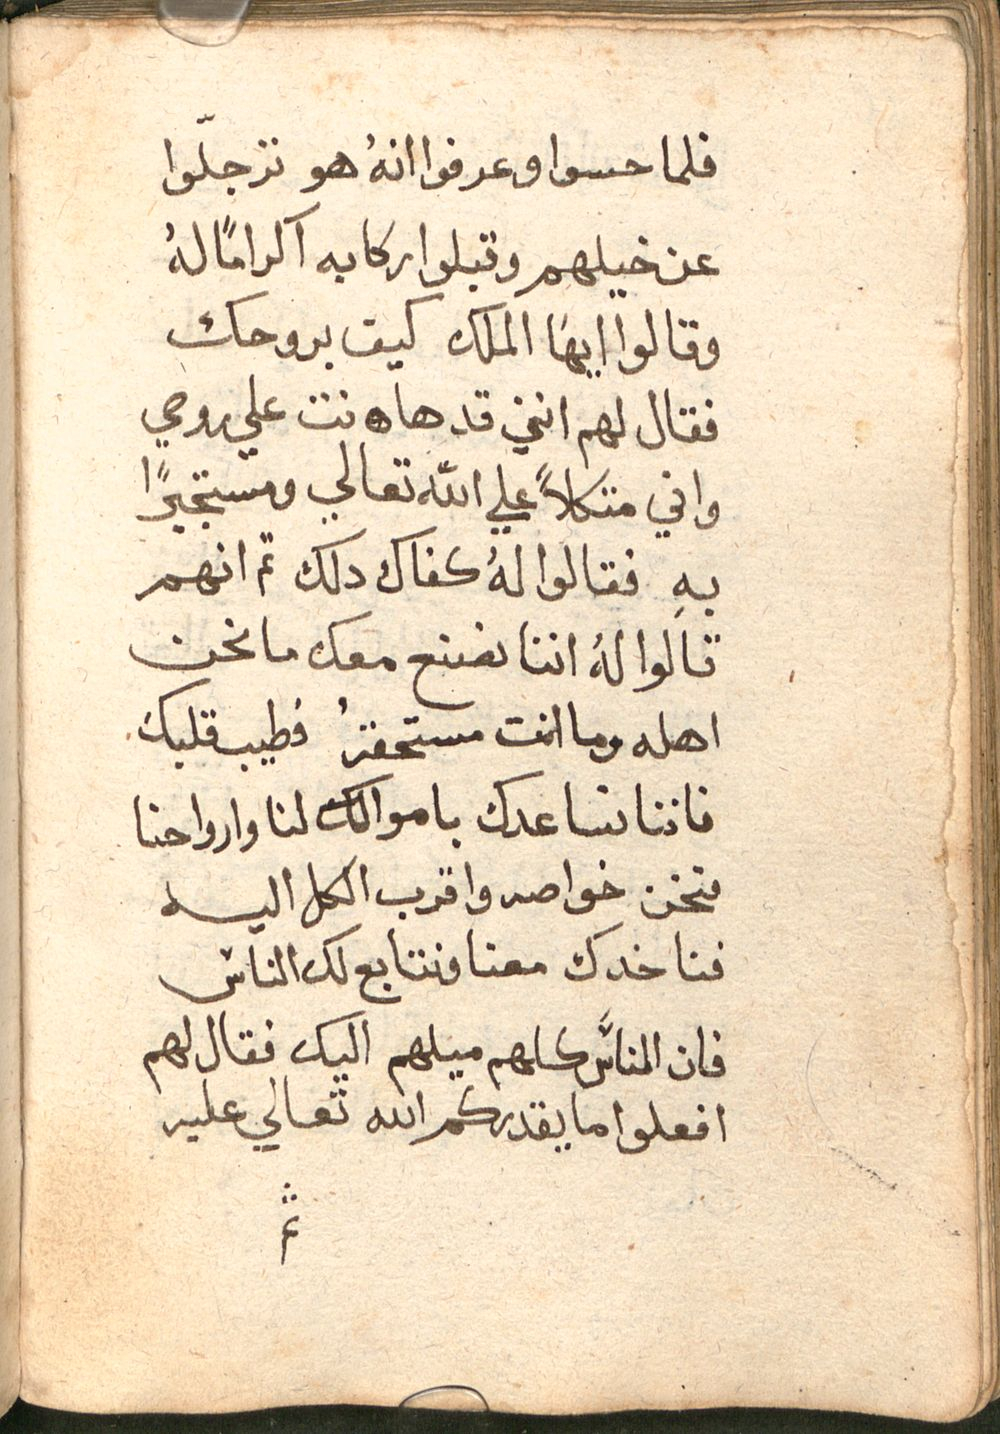 فلما حسوا وعرفوا انهُ هو ترجلّوا
عن خيلهم وقبلوا ركابه اكرامًا لهُ
وقالوا ايها الملك كيف بروحك
فقال لهم انني قد هانت علي روحي
واني متكلاً علي الله تعالي ومستجيرًا
بهِ فقالوا لهُ كفاك دلك ثم انهم
قالوا لهُ اننا نصنع معك ما نحن
اهله وما انت مستحقهُ فطيب قلبك
فاننا نساعدك باموالك لنا وارواحنا
فنحن خواصه واقرب الكل اليه
فناخدك معنا ونتابع لك الناس
فان الناس كلهم ميلهم اليك فقال لهم
افعلوا ما يقدركم الله تعالي عليه
ثم